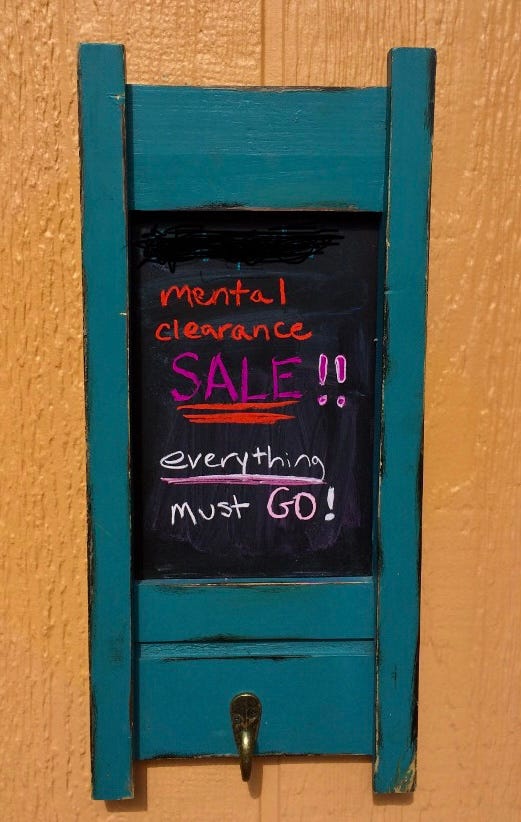 mental
clearance
SALE!!
everything
must GO!